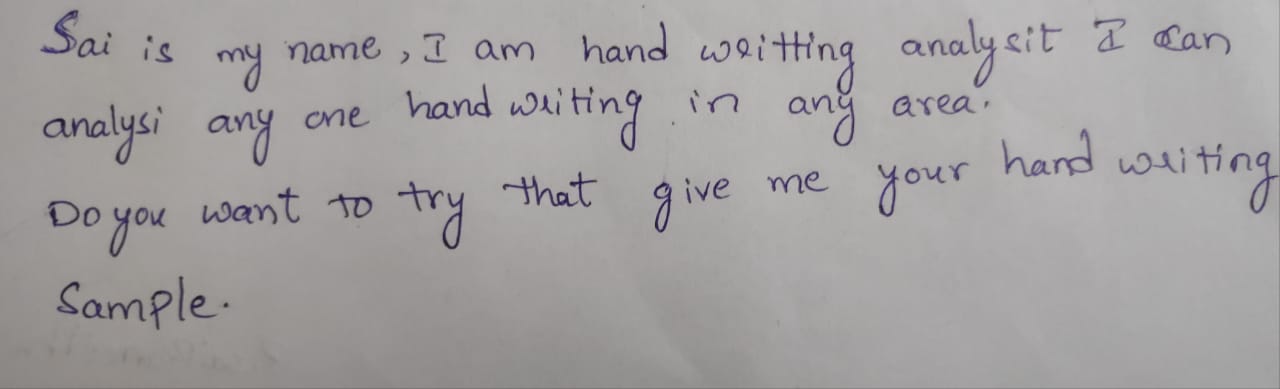 Sai is my name, I am hand writting analysit I can
analysi any one hand writing in any area.
Do you want to try that give me your hand writing
Sample.